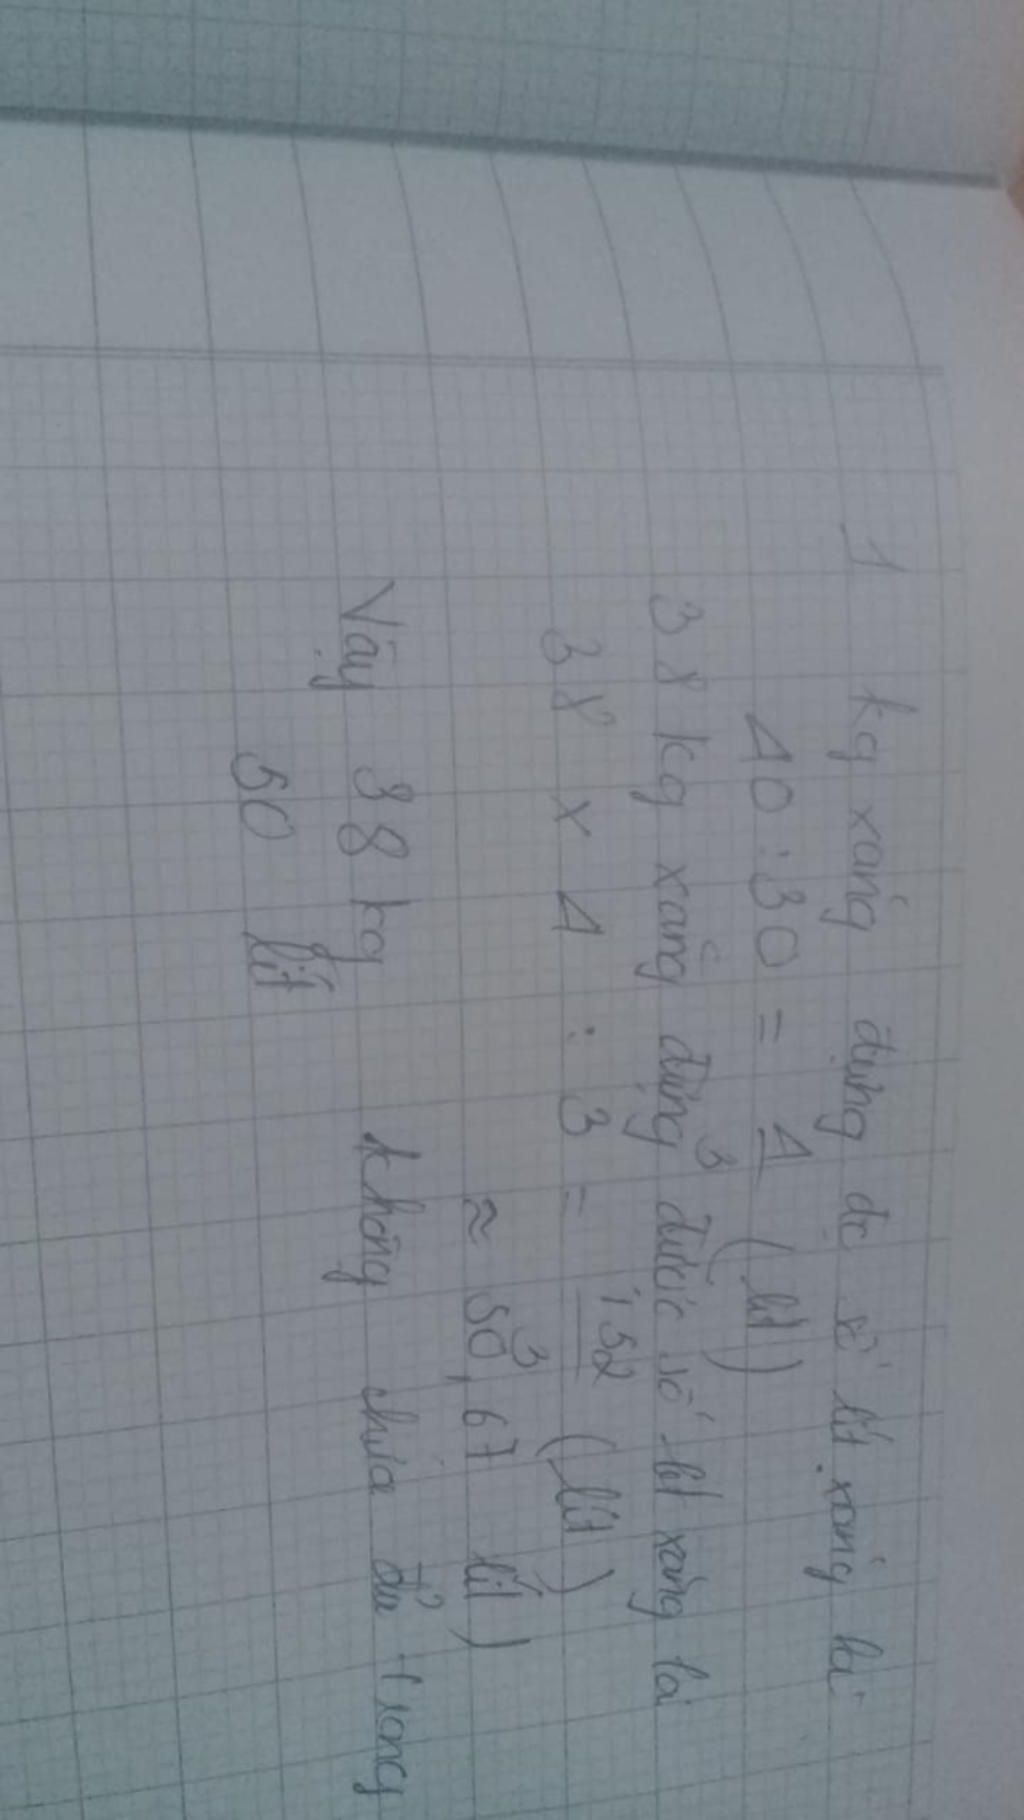 1 kg xăng đựng đc số lít xăng là
40 : 30 = 4/3 (lít)
38 kg xăng đựng được số lít xăng là
38 x 4 : 3 = 152/3 (lít)
≈ 50,67 lít)
Vậy 38 kg không chứa đủ trong
50 lít